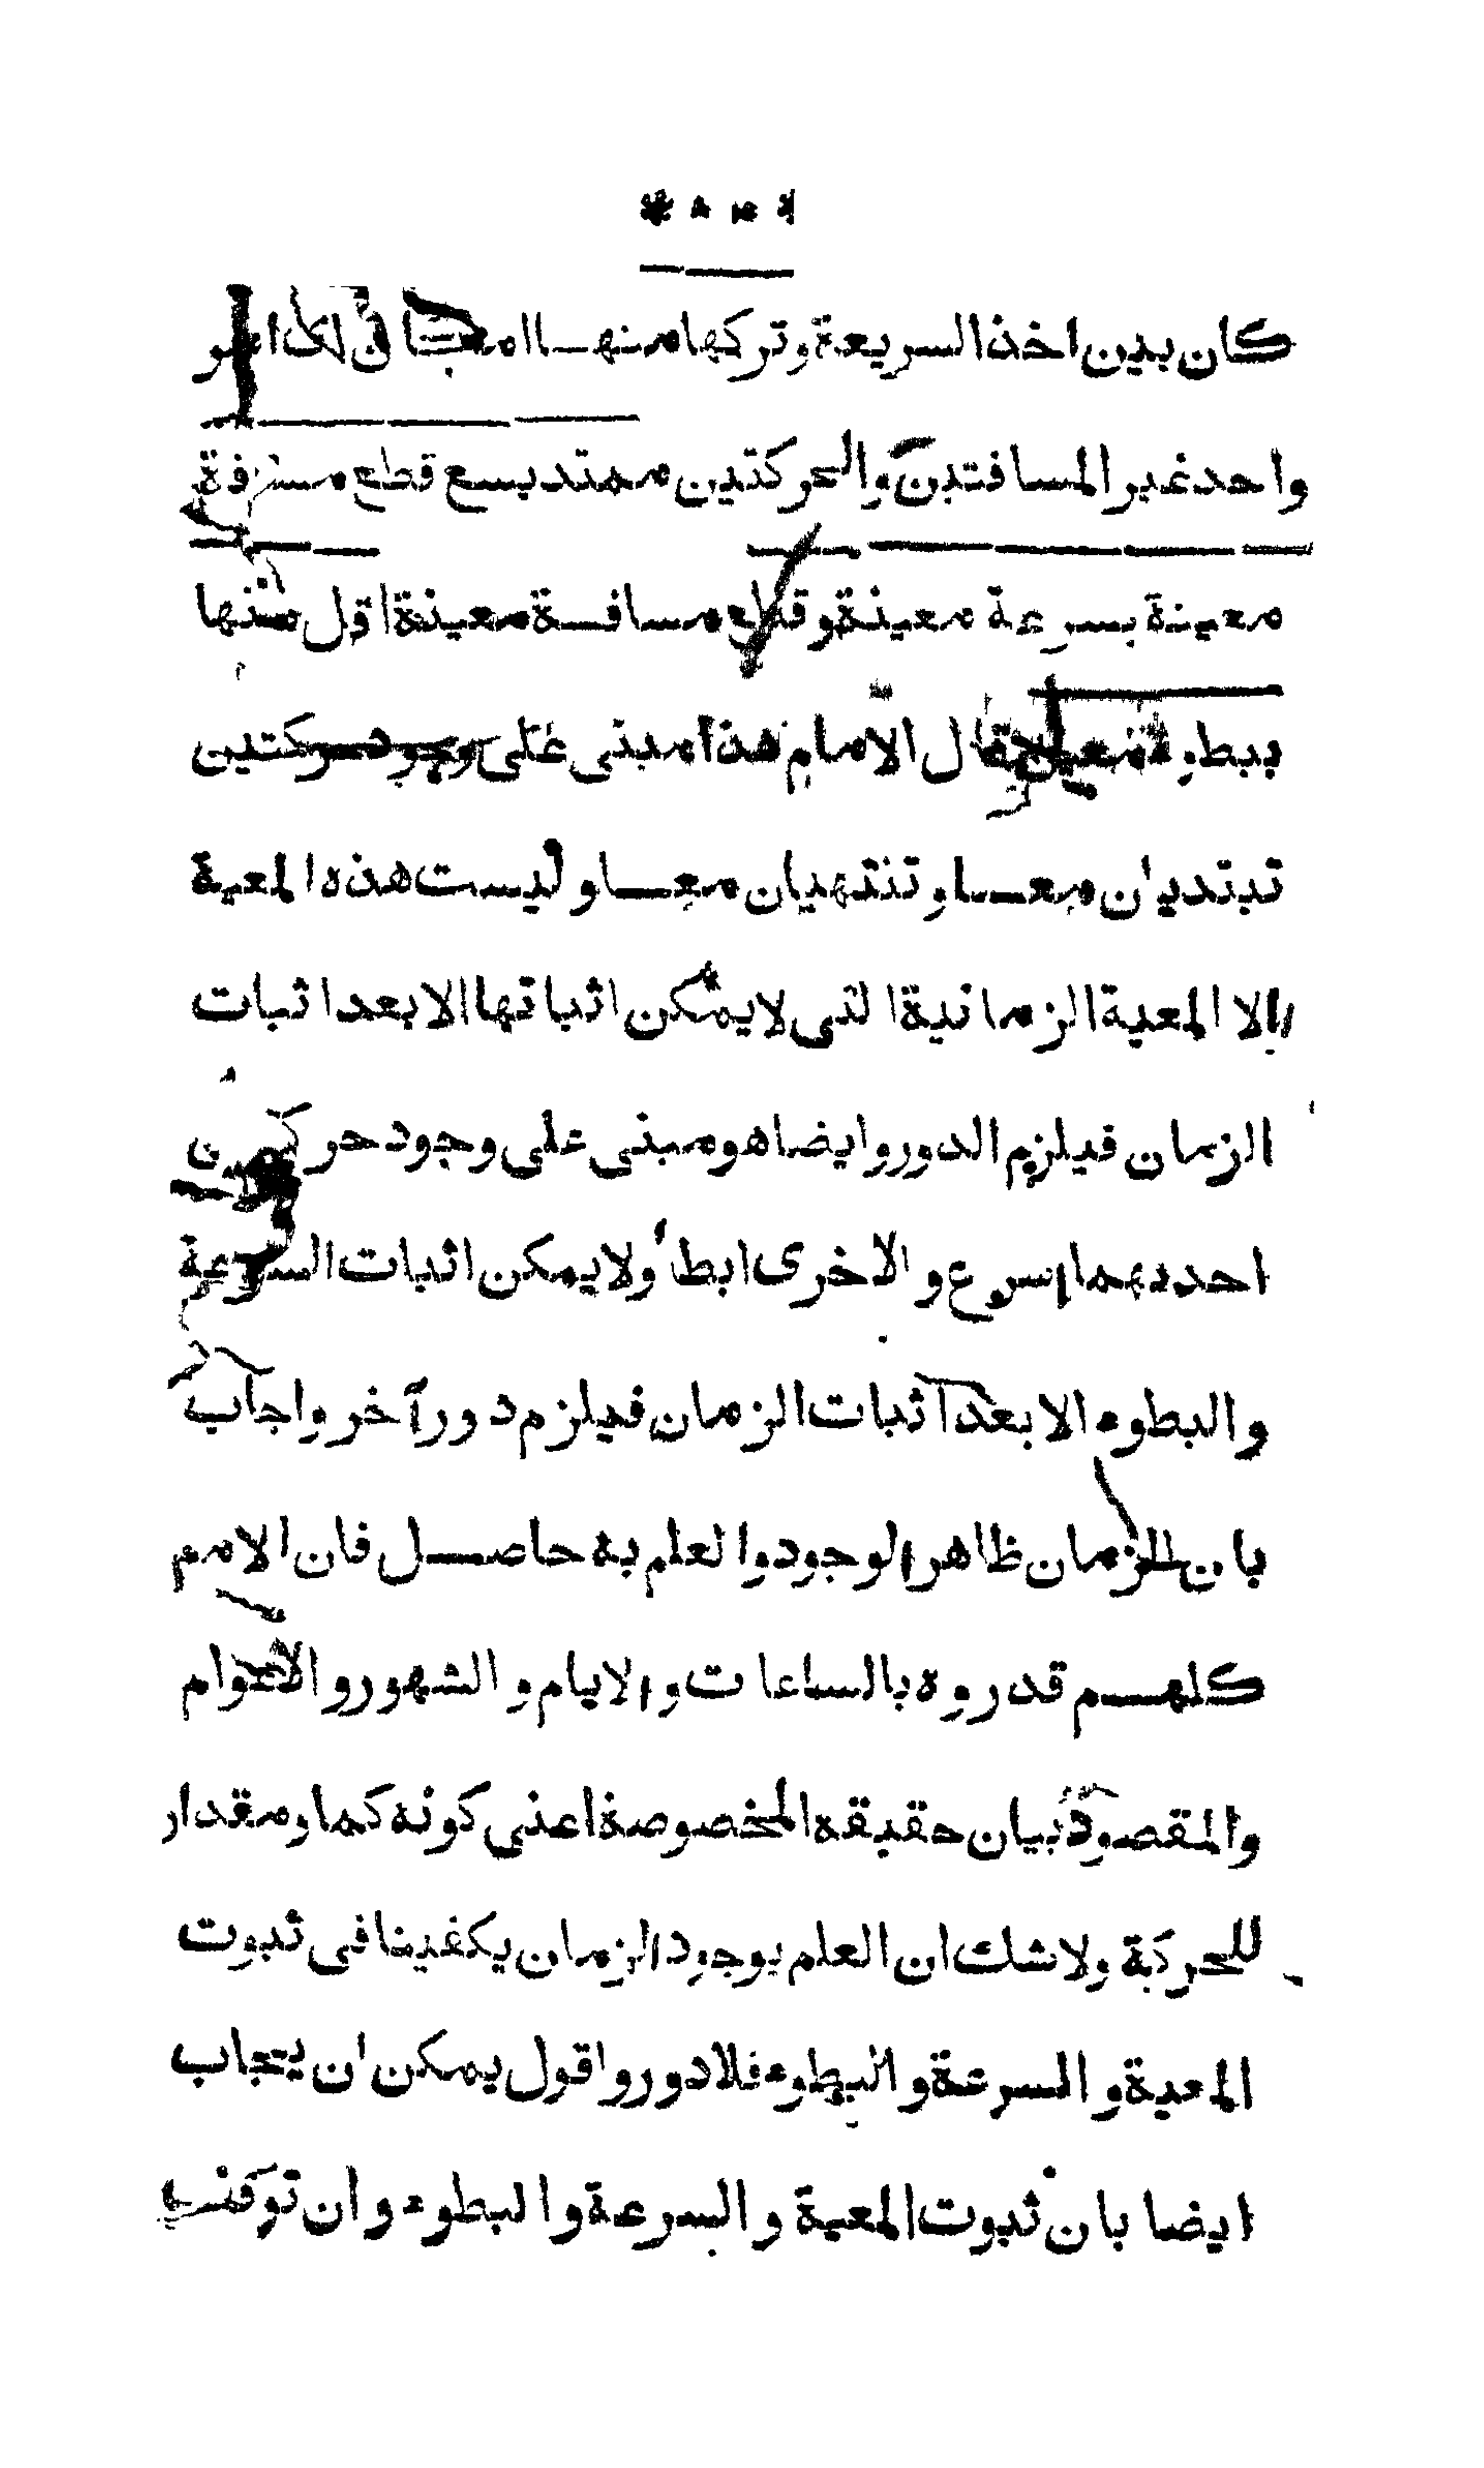 كان بين اخذ السريعة وتركها منها امكان اى امر
واحد غير المسافتين والحركتين ممتد يسع قطع مسافة
معينة بسرعة معينة وقطع مسافة معينة اقل منها
ببطوء معين قال الامام هذا مبنى على وجود حركتين
تبتديان معا و تنتهيان معا و ليست هذه المعية
الا المعية الزمانية التى لا يمكن اثباتها الا بعد اثبات
الزمان فيلزم الدور وايضا هو مبنى على وجود حركتين
احديهما اسرع و الاخرى ابطأ ولا يمكن اثبات السرعة
والبطوء الا بعد اثبات الزمان فيلزم دور آخر واجاب
بان الزمان ظاهر الوجود والعلم به حاصل فان الامم
كلهم قدروه بالساعات والايام و الشهور و الاعوام
والمقصود بيان حقيقه المخصوصة اعنى كونه كما ومقدار
للحركة ولا شك ان العلم بوجود الزمان يكفينا فى ثبوت
المعية و السرعة و البطوء فلا دور واقول يمكن ان يجاب
ايضا بان ثبوت المعية و السرعة والبطوء وان توقف